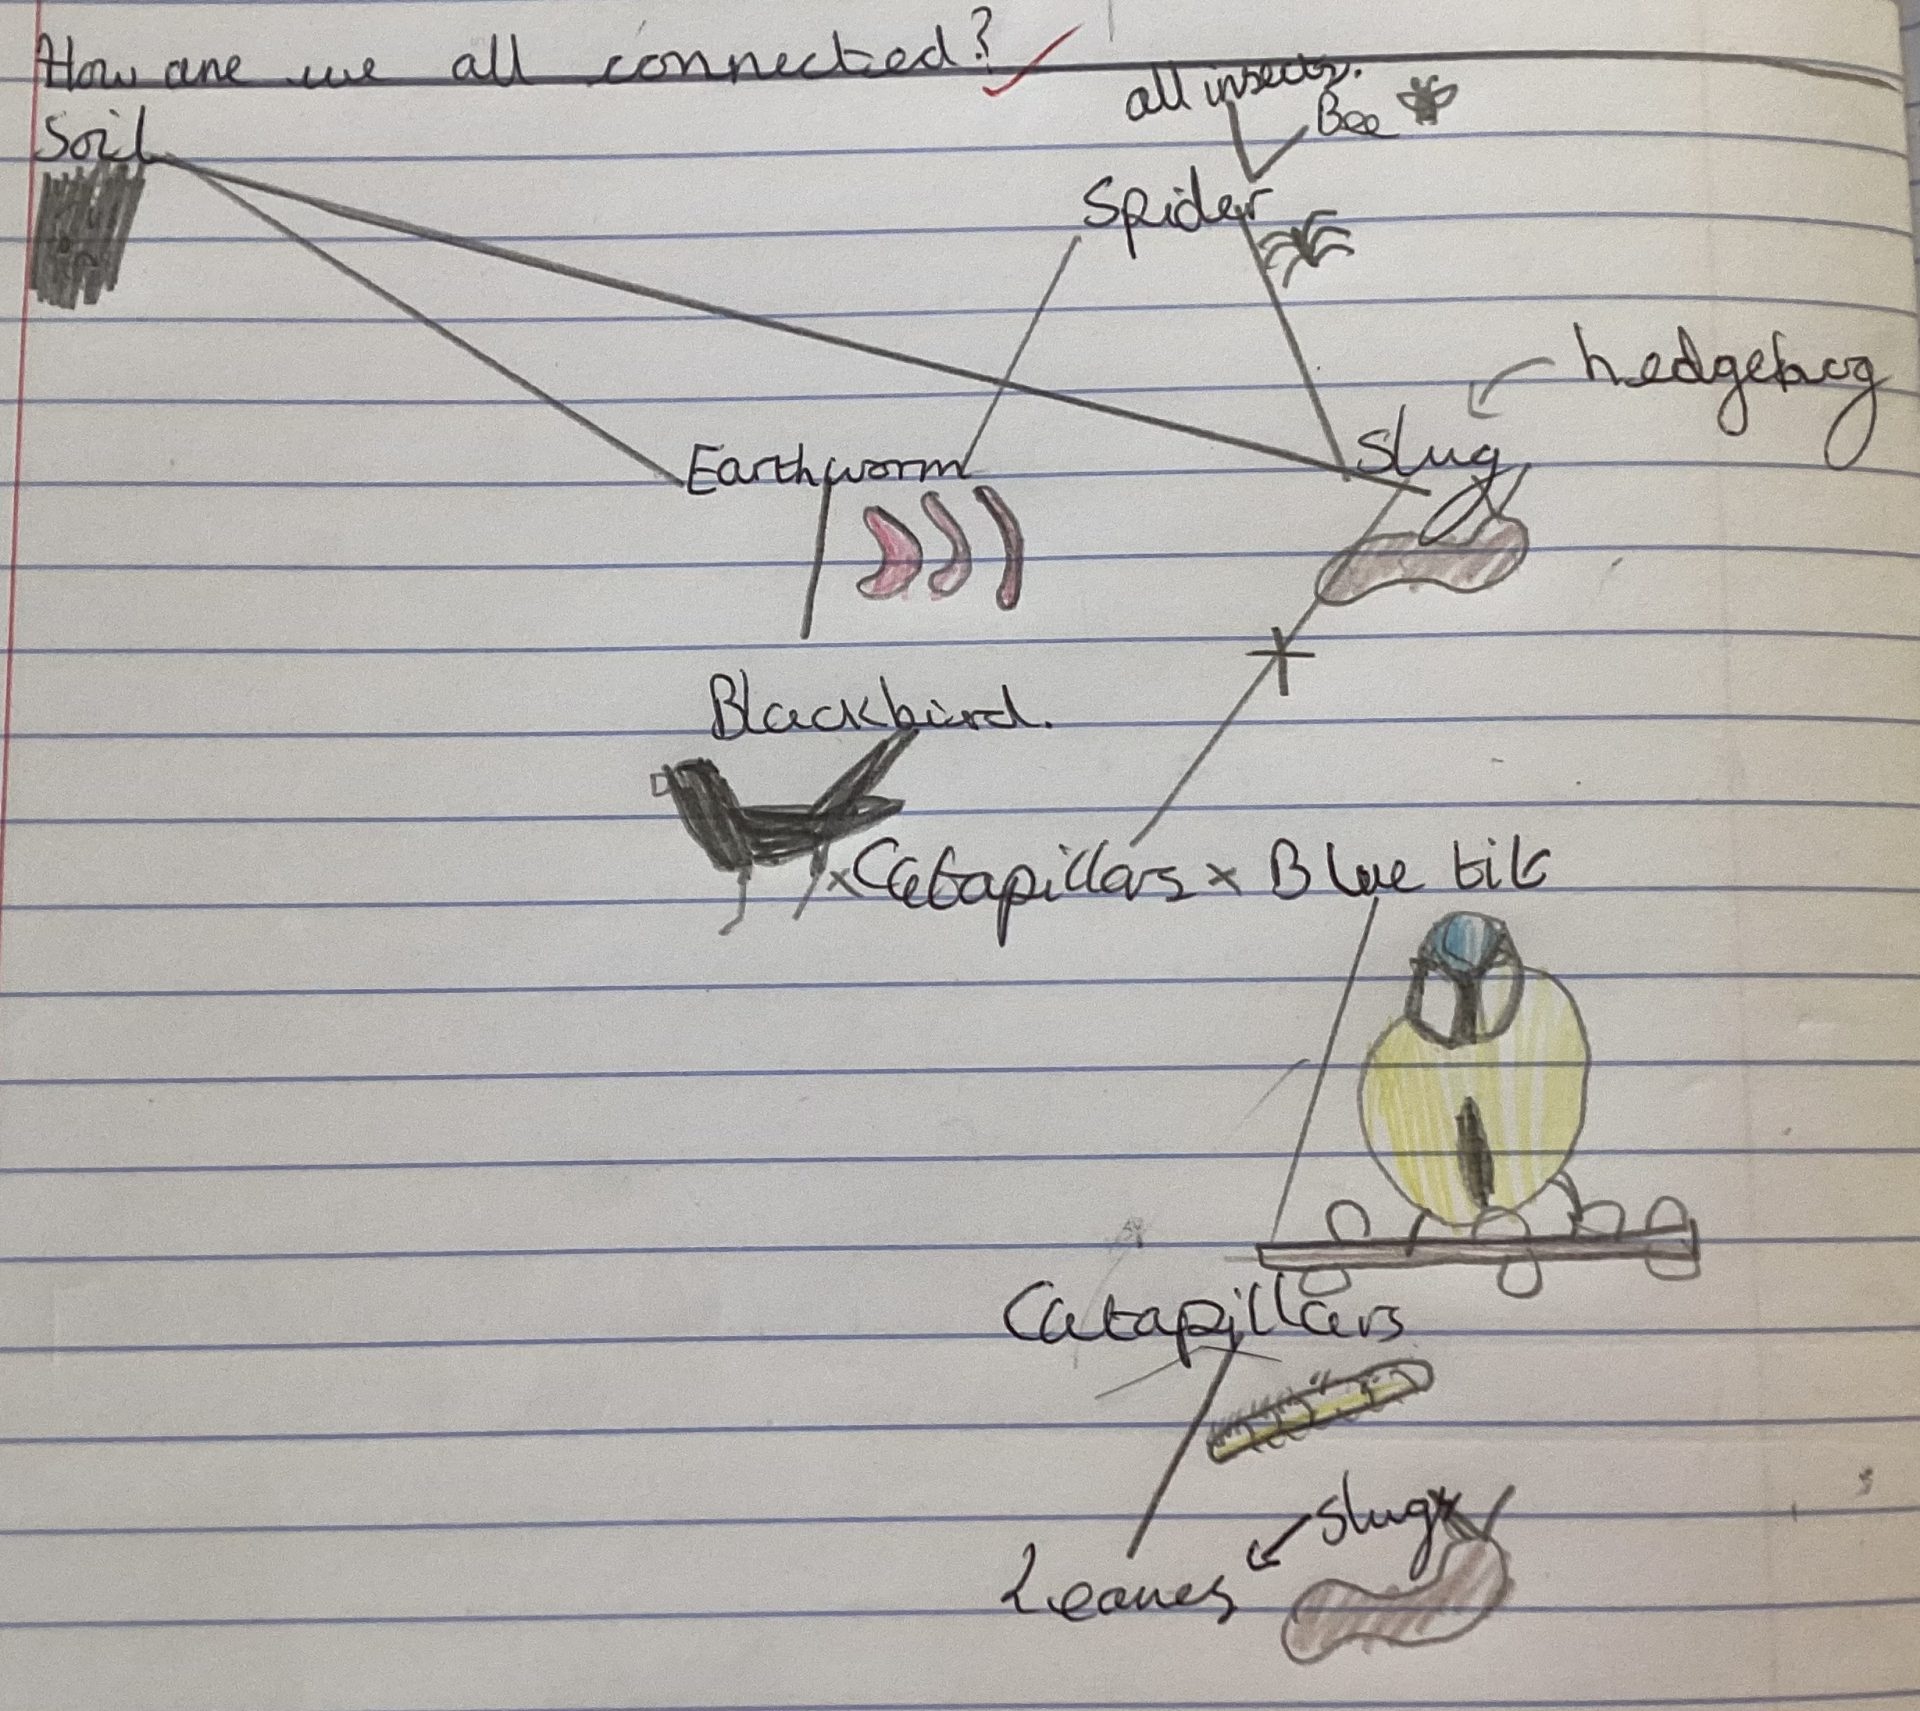 How are we all connected?
all insects.
Bee
Soil
Spider
hedgehog
Slug
Earthworm
Blackbird.
x Catapillars x Blue tit
Catapillars
slug
Leaves